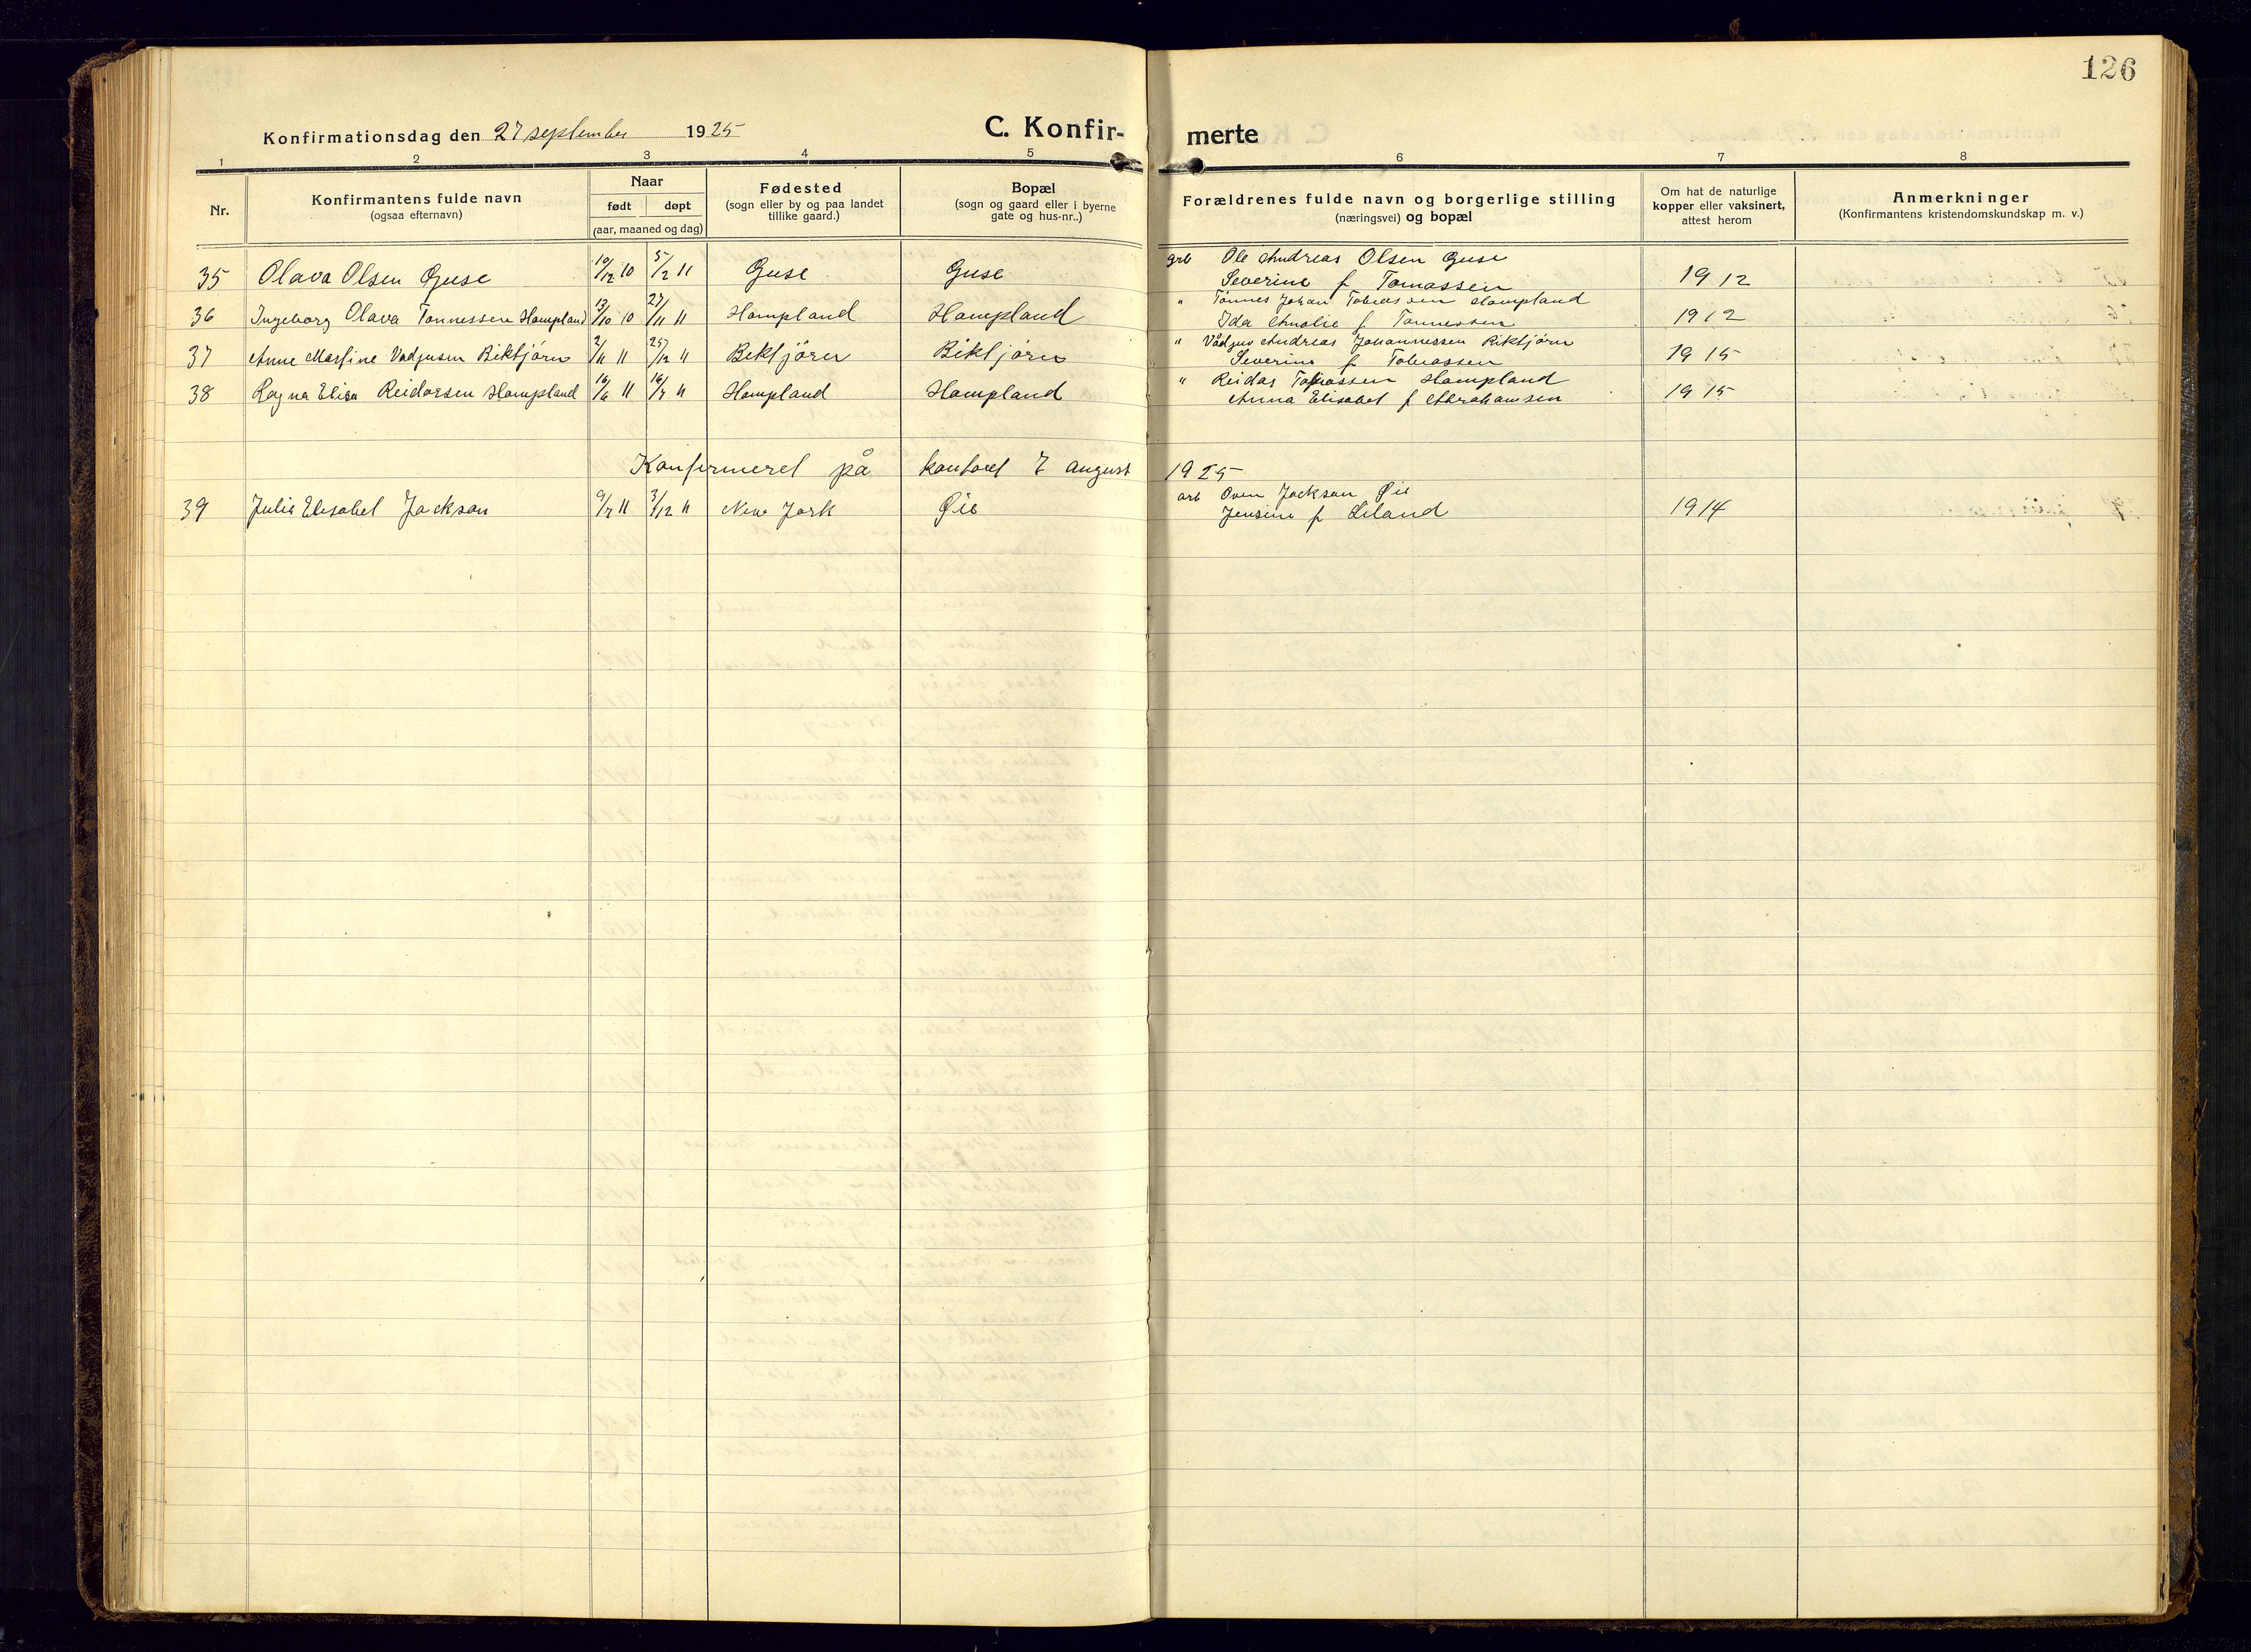 126
Konfirmationsdag den 27 september 1925
C. Konfir-
merte
1 2 3 4 5 6 7 8
Nr.
Konfirmantens fulde navn
(ogsaa efternavn)
Naar
født døpt
(aar, maaned og dag)
Fødested
(sogn eller by og paa landet
tillike gaard.)
Bopæl
(sogn og gaard eller i byerne
gate og hus-nr..)
Forældrenes fulde navn og borgerlige stilling
(næringsvei) og bopæl
Om hat de naturlige
kopper eller vaksinert,
attest herom
Anmerkninger
(Konfirmantens kristendomskundskap m. v.)
35 Olava Olsen Guse 10/12 10 5/2 11 Guse Guse grb Ole Andreas Olsen Guse
Severine f Tomassen 1912
36 Ingeborg Olava Tønnessen Hompland 13/10 10 27/11 11 Hompland Hompland " Tønnes Johan Tobiassen Hompland
Ida Amalie f Tønnessen 1912
37 Anne Marfine Vadjusen Birktjörn 2/11 11 25/12 11 Bektjörn Biktjörn " Vådjuv Andreas Johannessen Riktjörn
Severine f Tobiassen 1915
38 Ragna Elisa Reidarsen Hompland 19/6 11 16/7 11 Hompland Hompland " Reidar Tobiassen Hompland
Anna Elisabet f Abrahamsen 1915
Konfirmeret på kontoret 7 august 1925
39 Julia Elisabet Jackson 9/7 11 3/12 11 New Jork Øie arb Oven Jackson Øie
Jensine f Liland 1914